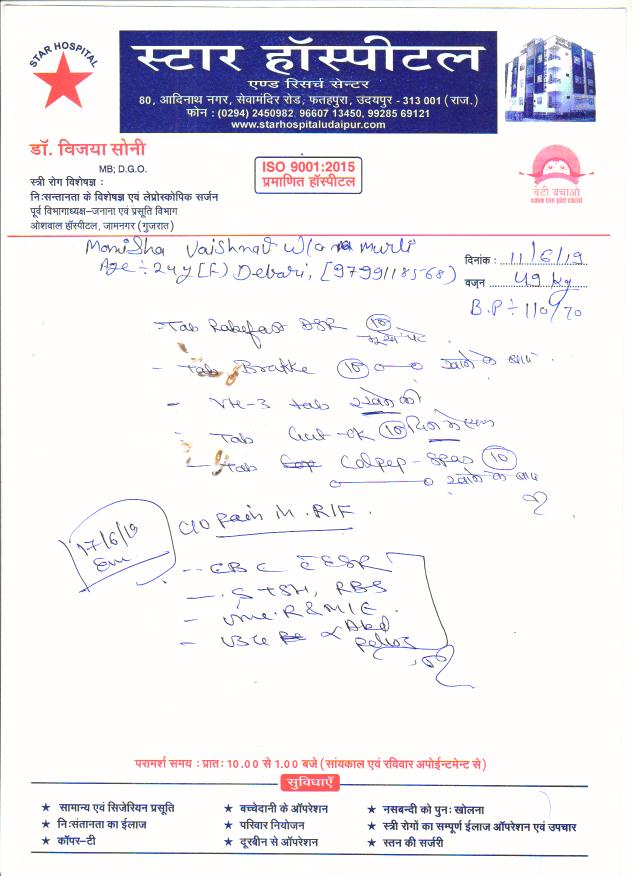 STAR HOSPITAL
स्टार हॉस्पीटल
एण्ड रिसर्च सेन्टर
80, आदिनाथ नगर, सेवामंदिर रोड, फतहपुरा, उदयपुर - 313 001 (राज.)
फोन : (0294) 2450982, 96607 13450, 99285 69121
www.starhospitaludaipur.com
डॉ. विजया सोनी
MB; D.G.O.
स्त्री रोग विशेषज्ञ :
निःसन्तानता के विशेषज्ञ एवं लेप्रोस्कोपिक सर्जन
पूर्व विभागाध्यक्ष–जनाना एवं प्रसूति विभाग
ओशवाल हॉस्पीटल, जामनगर (गुजरात)
ISO 9001:2015
प्रमाणित हॉस्पीटल
बेटी बचाओ
save the girl child
Manisha Vaishnav W/o Murli
Age ÷ 24y [F] Debari, [9799118568)
दिनांक : 11/6/19
वजन 49 kg
B.P ÷ 110/70
-Tab Rabefast DSR 10
भूखे पेट
- Tab Bratke 10 खाने के बाद
- VH-3 tab रखने की
- Tab Gut-ok 10
- Tab Colpep-Spas 10
खाने के बाद
17/6/19
C/O Pain in RIF.
- CBC ESR
- S TSH, RBS
- R & M/E
- Abd
Pelvis
परामर्श समय : प्रातः 10.00 से 1.00 बजे (सांयकाल एवं रविवार अपोईन्टमेन्ट से)
सुविधाएँ
★ सामान्य एवं सिजेरियन प्रसूति ★ बच्चेदानी के ऑपरेशन ★ नसबन्दी को पुनः खोलना
★ निःसंतानता का ईलाज ★ परिवार नियोजन ★ स्त्री रोगों का सम्पूर्ण ईलाज ऑपरेशन एवं उपचार
★ कॉपर–टी ★ दूरबीन से ऑपरेशन ★ स्तन की सर्जरी